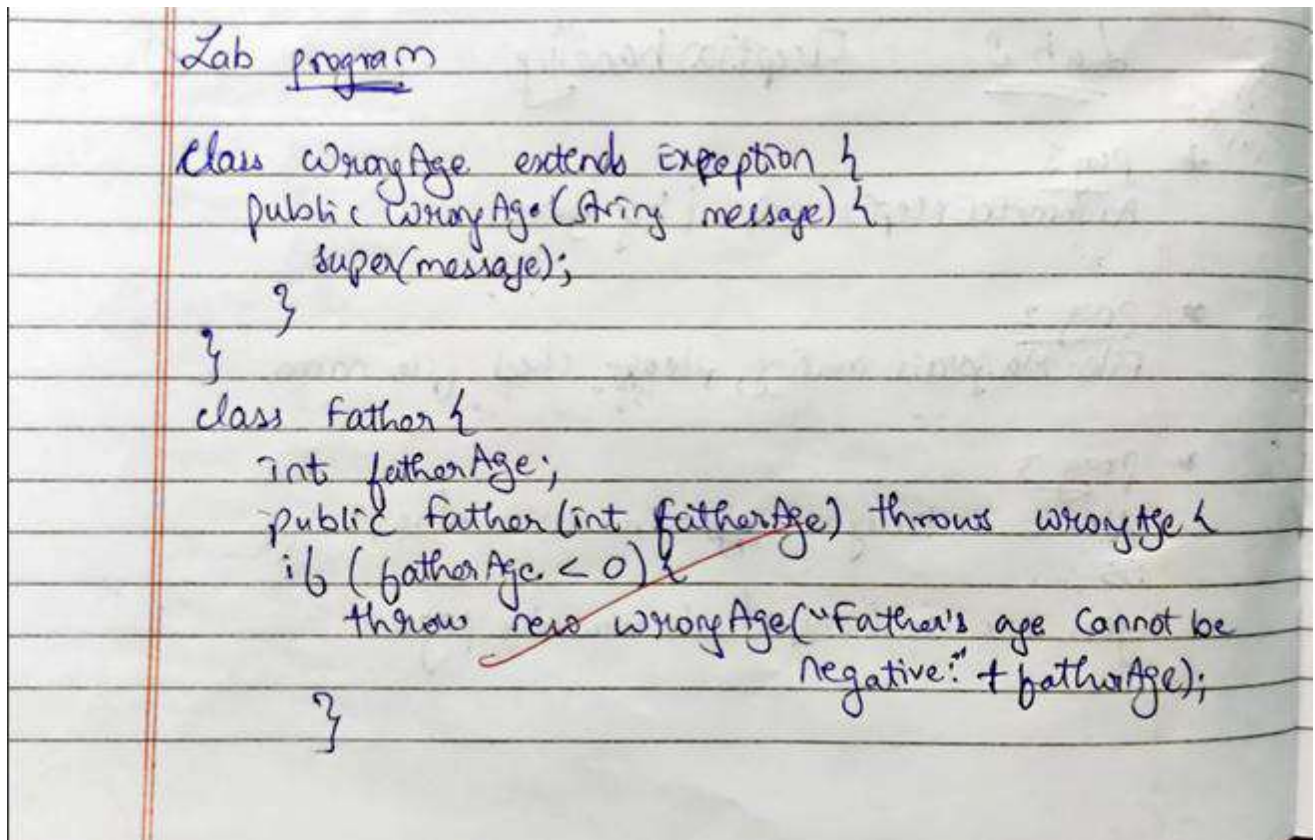 Lab program
class WrongAge extends Exception {
public WrongAge (String message) {
super(message);
}
}
class Father {
int fatherAge;
public Father (int fatherAge) throws WrongAge {
if (fatherAge < 0) {
throw new WrongAge("Father's age cannot be
negative:" + fatherAge);
}